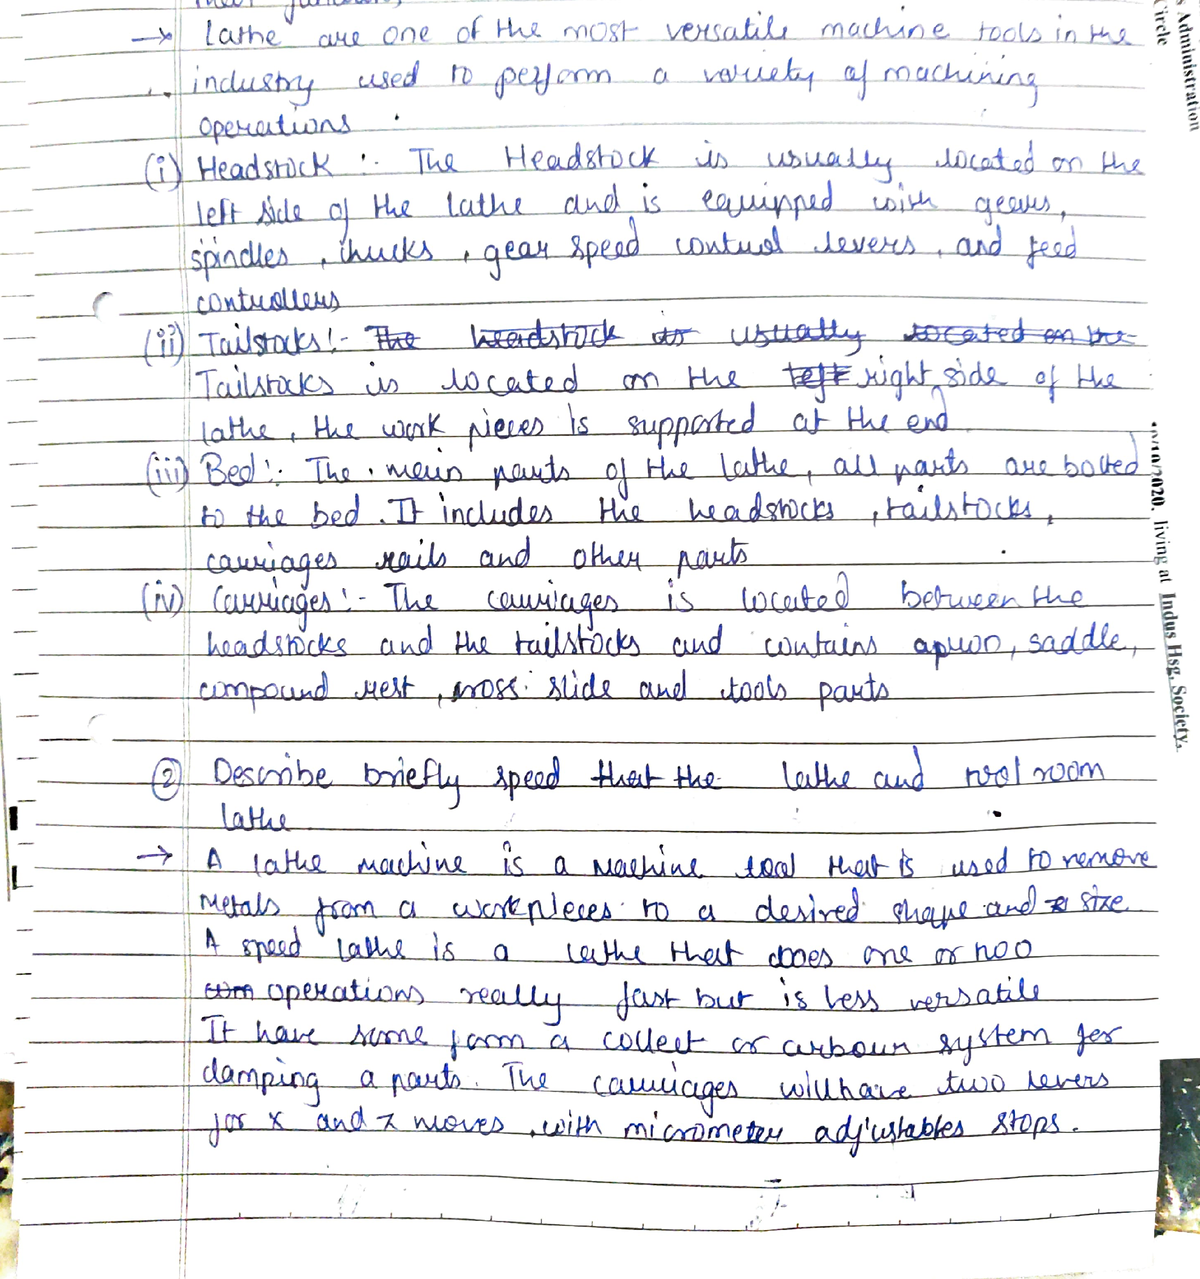 their functions
→ lathe are one of the most versatile machine tools in the
industry used to perform a variety of machining
operations
(i) Headstock :- The Headstock is usually located on the
left side of the lathe and is equipped with gears,
spindles, chucks, gear speed control levers, and feed
controllers
(ii) Tailstocks :- The headstock is usually located on the
Tailstocks is located on the left right side of the
lathe, the work pieces is supported at the end
(iii) Bed :- The main parts of the lathe, all parts are bolted
to the bed. It includes the headstocks, tailstocks,
carriages rails and other parts
(iv) Carriages :- The carriages is located between the
headstocks and the tailstocks and contains apron, saddle,
compound rest, cross slide and tools parts
② Describe briefly speed that the lathe and tool room
lathe
→ A lathe machine is a machine tool that is used to remove
metals from a workpieces to a desired shape and size
A speed lathe is a lathe that does one or
operations really fast but is less versatile
It have some form a collect or arbour system for
clamping a parts. The carriages will have two levers
for x and z moves, with micrometer adjustables stops.
s Administration
Circle
10/2020. living at Indus Hsg. Society,